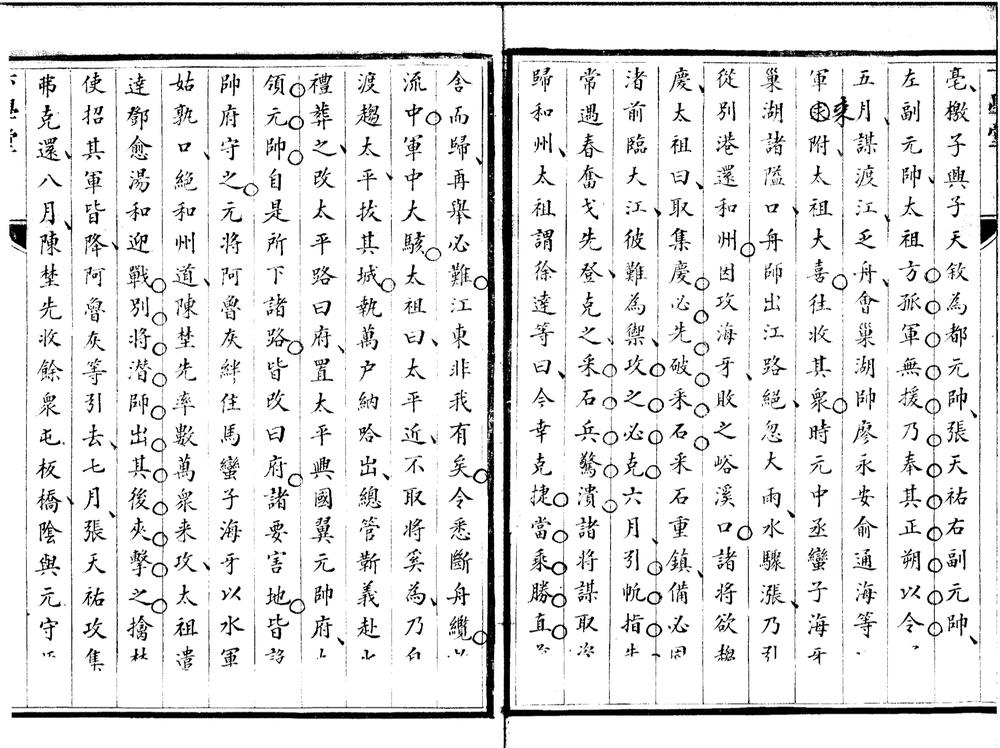 亳檄子興子天敘為都元帥張天祐右副元帥
左副元帥太祖方孤軍無援乃奉其正朔以令
五月謀渡江乏舟會巢湖帥廖永安俞通海等
軍來附太祖大喜往收其衆時元中丞蠻子海牙
巢湖諸隘口舟師出江路絕忽大雨水驟漲乃引
從別港還和州因攻海牙敗之峪溪口諸將欲趨
慶太祖曰取集慶必先破采石采石重鎮備必固
渚前臨大江彼難為禦攻之必克六月引帆指牛
常遇春奮戈先登克之采石兵驚潰諸將謀取
歸和州太祖謂徐達等曰今幸克捷當乘勝直
舍而歸再舉必難江東非我有矣令悉斷舟纜
流中軍中大駭太祖曰太平近不取將奚為乃自
渡趨太平拔其城執萬户納哈出總管靳義赴水
禮葬之改太平路曰府置太平興國翼元帥府
領元帥自是所下諸路皆改曰府諸要害地皆
帥府守之元將阿魯灰絆住馬蠻子海牙以水軍
姑孰口絕和州道陳埜先率數萬衆来攻太祖遣
達鄧愈湯和迎戰別將潛師出其後夾擊之擒埜
使招其軍皆降阿魯灰等引去七月張天祐攻集
弗克還八月陳埜先收餘衆屯板橋陰與元守